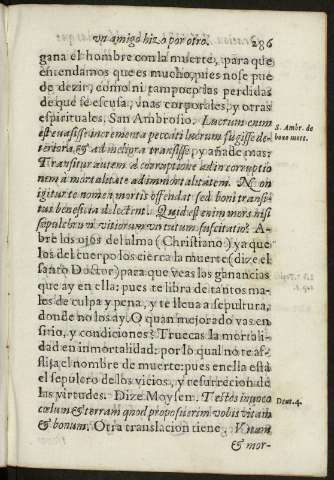 vn amigo hizo por otro. 286
gana el hombre con la muerte, para que
entendamos que es mucho, pues no se pue
de dezir, como ni tampoco las perdidas
de que se escusa, vnas corporales, y otras
espirituales. San Ambrosio. Lucrum enim
S. Ambr. de
bono mort.
est euasisse incrementa peccati lucrum fugisse de-
teriora, & ad meliora transisse, y añade mas:
Transitur autem à corruptione ad incorruptio
nem à mortalitate ad immortalitatem. Non
igitur te nomen mortis offendat sed boni transi-
tus beneficia delectent. Quid est enim mors nisi
sepultura vitiorum virtutum suscitatio? A-
bre los ojos del alma (Christiano) ya que
los del cuerpo los cierra la muerte (dize el
santo Doctor) para que veas las ganancias
que ay en ella: pues te libra de tantos ma-
les de culpa y pena, y te lleua a sepultura,
donde no los ay. O quan mejorado vas en
sitio, y condiciones? Truecas la mortali-
dad en inmortalidad: por lo qual no te af-
flija el nombre de muerte: pues en ella està
el sepulcro de los vicios, y resurrecion de
las virtudes. Dize Moysen. Testes inuoco
Deut. 4.
cœlum & terram quod proposuerim vobis vitam
& bonum. Otra translacion tiene, Vitam
& mor-